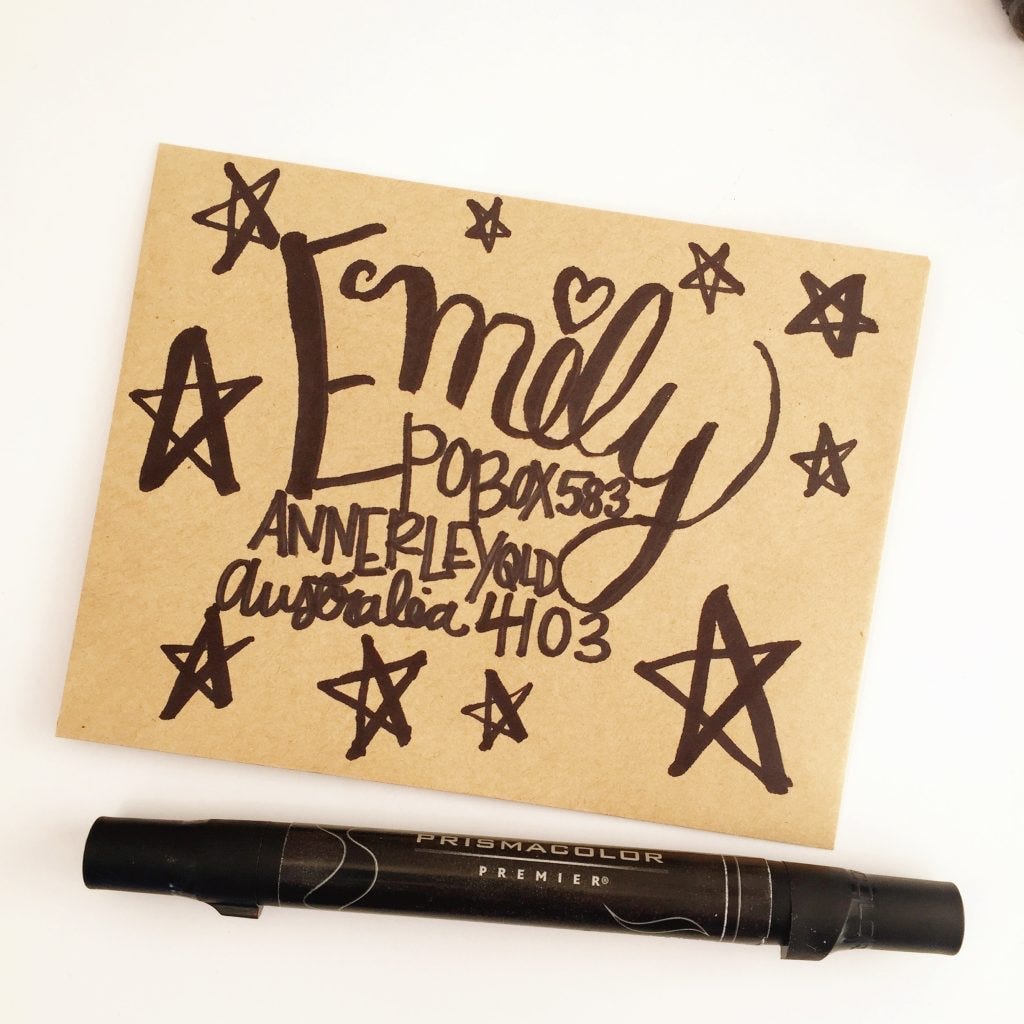 Emily
PO BOX 583
ANNERLEY QLD
australia 4103
PRISMACOLOR
PREMIER®